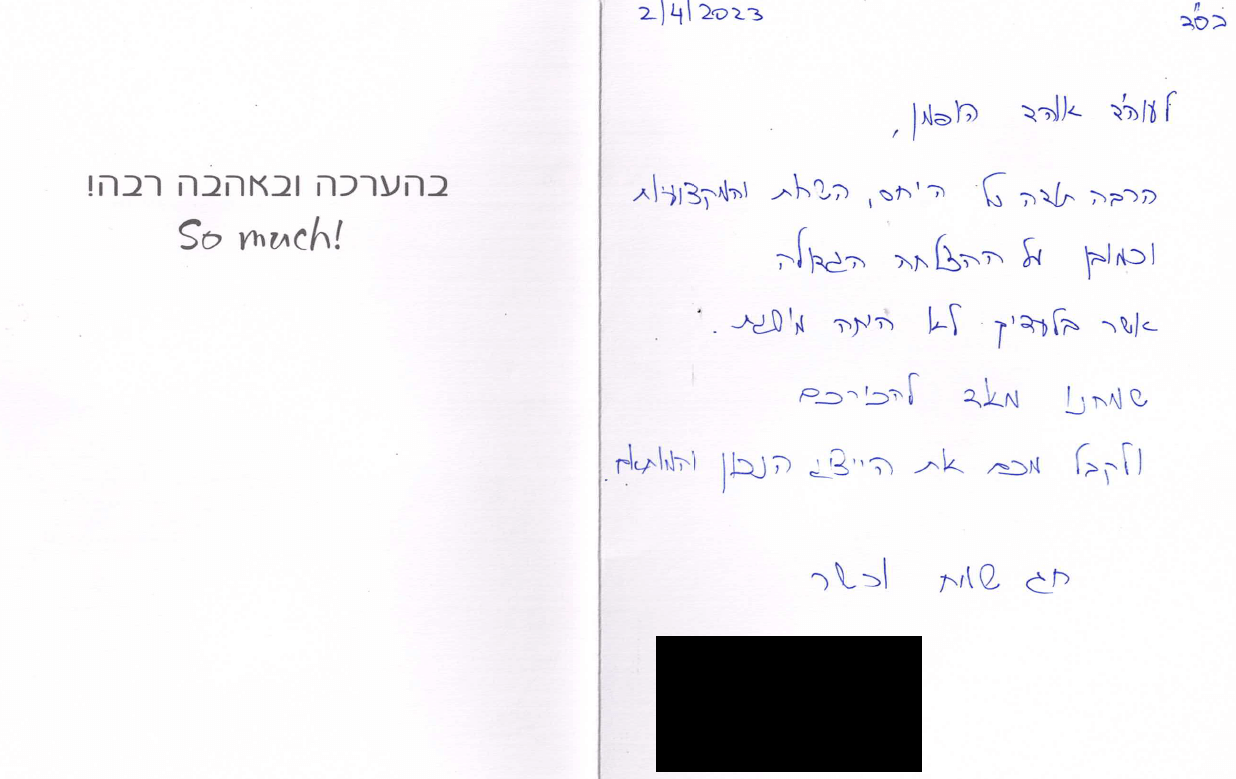 בהערכה ובאהבה רבה!
So much!
בס"ד
2/4/2023
לעוה"ד אוהד הופמן,
הרבה תודה על היחס, השרות והמקצועיות
וכמובן על ההצלחה הגדולה
אשר בלעדיך לא היתה מושגת.
שמחנו מאד להכירכם
ולקבל מכם את הייצוג הנכון והמתאים
חג שמח וכשר